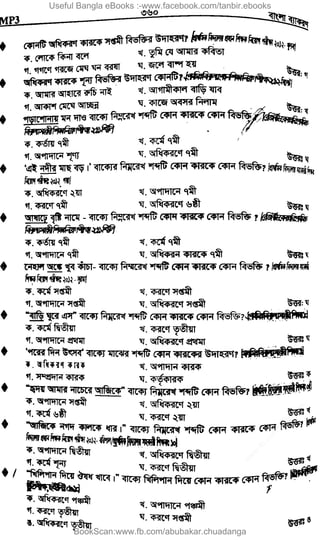 Useful Bangla eBooks :-www.facebook.com/tanbir.ebooks
MP3 ৩৬০ বাংলা ব্যাকরণ
♦ কোনটি অধিকরণ কারকে সপ্তমী বিভক্তির উদাহরণ?
ক. লোকে কিনা বলে খ. তুমি যে আমার কবিতা
গ. গগণে গরজে মেঘ ঘন বরষা ঘ. জলে বাষ্প হয় উত্তর: গ
♦ অধিকরণ কারকে শূন্য বিভক্তির উদাহরণ কোনটি?
ক. আমার আহারে রুচি নাই খ. আগামীকাল বাড়ি যাব
গ. আকাশ মেঘে আচ্ছন্ন ঘ. কাজে অবসর নিলাম
♦ পড়াশোনায় মন দাও বাক্যে নিম্নরেখ শব্দটি কোন কারকে কোন বিভক্তি
ক. কর্তায় ৭মী খ. কর্মে ৭মী
গ. অপাদানে শূন্য ঘ. অধিকরণে ৭মী উত্তর: ঘ
♦ 'এই নদীর মাছ বড়।' বাক্যের নিম্নরেখ শব্দটি কোন কারকে কোন বিভক্তি?
ক. অধিকরণে ২য়া খ. অপাদানে ৭মী
গ. করণে ৭মী ঘ. অধিকরণে ৬ষ্ঠী উত্তর: ঘ
♦ আষাঢ়ে বৃষ্টি নামে - বাক্যে নিম্নরেখ শব্দটি কোন কারকে কোন বিভক্তি ?
ক. কর্তায় ৭মী খ. কর্মে ৭মী
গ. অপাদানে ৭মী ঘ. অধিকরন কারকে ৭মী উত্তর: ঘ
♦ নেহাল অঙ্কে খুব কাঁচা- বাক্যে নিম্নরেখ শব্দটি কোন কারকে কোন বিভক্তি ?
ক. কর্মে সপ্তমী খ. করণে সপ্তমী
গ. অপাদানে সপ্তমী ঘ. অধিকরণে সপ্তমী উত্তর: ঘ
♦ "বাড়ি ঘুরে এস" বাক্যে নিম্নরেখ শব্দটি কোন কারকে কোন বিভক্তি?
ক. কর্মে দ্বিতীয়া খ. করণে তৃতীয়া
গ. অপাদানে প্রথমা ঘ. অধিকরণে প্রথমা
♦ 'পরের দিন উৎসব' বাক্যে মাঝের শব্দটি কোন কারকের উদাহরণ?
ক. অধিকরণ কারক খ. অপাদান কারক
গ. সম্প্রদান কারক ঘ. কর্তৃকারক উত্তর: ক
♦ "হৃদয় আমার নাচেরে আজিকে" বাক্যে নিম্নরেখ শব্দটি কোন কারকে কোন বিভক্তি?
ক. অপাদানে সপ্তমী খ. অধিকরণে ২য়া
গ. কর্মে ৬ষ্ঠী ঘ. করণে ২য়া
♦ "আজিকে নগদ কালকে ধার।" বাক্যে নিম্নরেখ শব্দটি কোন কারকে কোন বিভক্তি?
ক. অপাদানে দ্বিতীয়া খ. অধিকরণে দ্বিতীয়া
গ. কর্মে শূন্য ঘ. করণে দ্বিতীয়া
♦ "থিলিপান দিয়ে ঔষধ খাবে।" বাক্যে থিলিপান দিয়ে কোন কারকে কোন বিভক্তি?
ক. অধিকরণে পঞ্চমী খ. অপাদানে পঞ্চমী
গ. করণে তৃতীয়া ঘ. করণে সপ্তমী
ঙ. অধিকরণে তৃতীয়া
BookScan:www.fb.com/abubakar.chuadanga